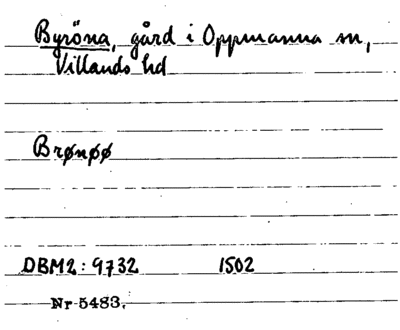 Byröna, gård i Oppmanna sn,
Villands hd
Brønøø
DBM2: 9732 1502
Nr 5483.